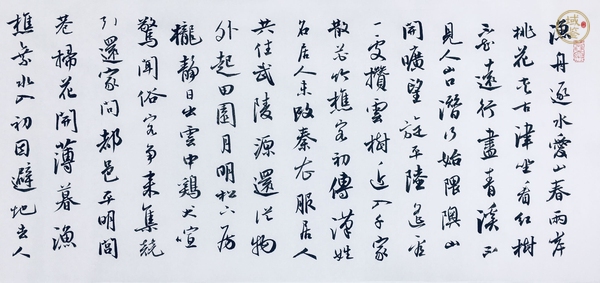 漁舟逐水愛山春兩岸
桃花夾古津坐看紅樹
不知遠行盡青溪不
見人山口潛行始隈隩山
開曠望旋平陸遙看
一處攢雲樹近入千家
散花竹樵客初傳漢姓
名居人未改秦衣服居人
共住武陵源還從物
外起田園月明松下房
櫳靜日出雲中雞犬喧
驚聞俗客爭來集競
引還家問都邑平明閭
巷掃花開薄暮漁
樵乘水入初因避地去人